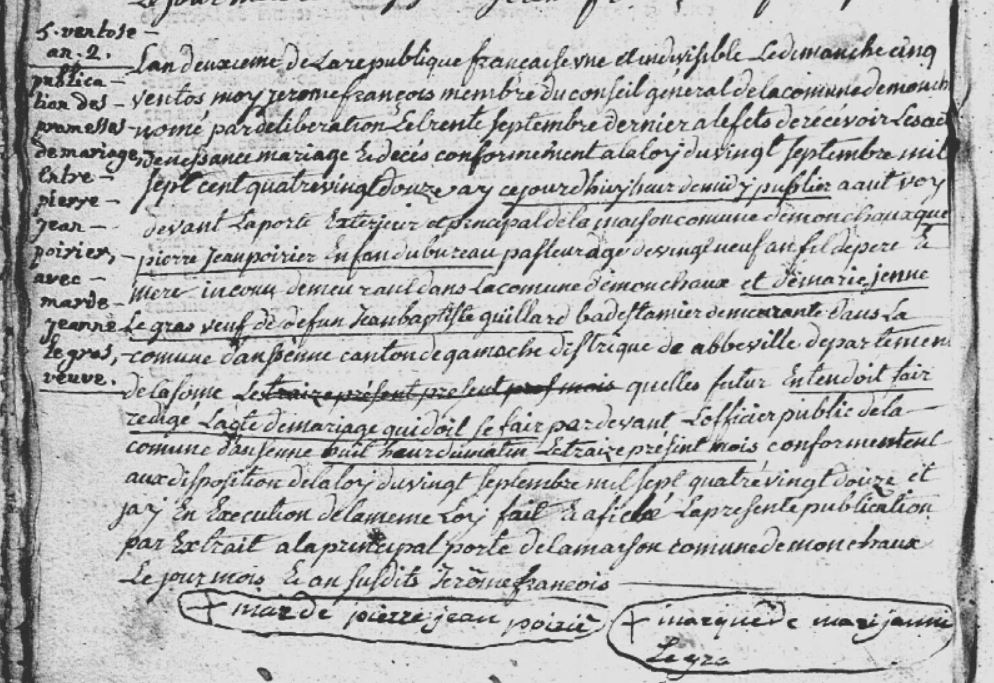 5. ventose
an. 2.
publica
tion des
promesses
de mariage,
Entre
pierre
jean
poirier,
avec
marie
jeanne
le gras,
veuve.
Lan deuxieme de La republique francaise vne et indivisible Le dimanche cinq
ventos moy jerome françois membre du conseil général de la comune de monch
nomé par deliberation Le trente septembre dernier a lefets de récévoir Les
de nessance mariage Et decés conformément a la loy du vingt septembre mil
sept cent quatre vingt douze ay ce jourdhuy heur de midy publier a aut voy
devant La porte Exterieur et principal de la maison comune de monchaux que
pierre jean poirier Enfan du bureau pasteur agé de vingt neuf an fil de pere Et
mere inconu demeurant dans La comune de monchaux et de marie jenne
Le gras veuf de defun Jean baptiste quillard badestamier demeurante dans La
comune dansenne canton de gamache distrique de abbeville departemen
de la some Le traize présent present mois quelles futur Entendoit fair
redigé Lagte de mariage qui doit se fair par devant Lofficier public de la
comune dansenne huit heur du matin Le traize présent mois conformement
aux disposition de la loy du vingt septembre mil sept quatre vingt douze et
jay En Execution de la meme Loy fait Et afiché La presente publication
par Extrait a la principal porte de la maison comune de monchaux
Le jour mois Et an susdits Jerome francois
+ mar de pierre jean poirie
+ marque de mari janne
Le gra